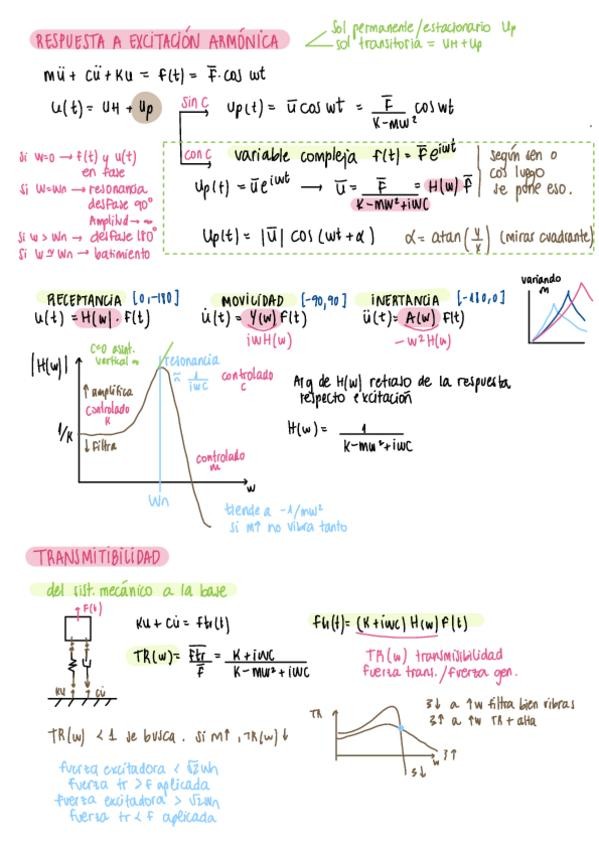 RESPUESTA A EXCITACIÓN ARMÓNICA
Sol permanente/estacionario Up
sol transitoria = UH+Up
mü + cu̇ + Ku = f(t) = F̅·cos wt
u(t) = UH + Up
sin C
Up(t) = u̅ cos wt = F̅/(K-mw²) cos wt
con C
variable compleja f(t) = F̅e^iwt
Up(t) = u̅e^iwt → u̅ = F̅/(K-mw²+iwc) = H(w) F̅
según sen o
cos luego
se pone eso.
Up(t) = |u̅| cos (wt+α) α = atan(y/x) (mirar cuadrante)
Si w=0 → f(t) y u(t)
en fase
Si w=wn → resonancia
desfase 90°
Amplitud → ∞
Si w > wn → desfase 180°
Si w ≃ wn → batimiento
RECEPTANCIA [0,-180]
u(t) = H(w)·F(t)
MOVILIDAD [-90,90]
u̇(t) = Y(w) F(t)
iwH(w)
INERTANCIA [-180,0]
ü(t) = A(w) F(t)
-w²H(w)
variando
m
|H(w)|
C=0 asint.
vertical ∞
resonancia
≈ 1/iwc
controlado
c
↑ amplifica
controlado
K
1/K
↓ filtra
controlado
m
w
wn
tiende a -1/mw²
si m↑ no vibra tanto
Arg de H(w) retraso de la respuesta
respecto excitación
H(w) = 1/(K-mw²+iwc)
TRANSMITIBILIDAD
del sist. mecánico a la base
F(t)
Ku
cu̇
Ku + cu̇ = ftr(t)
TR(w) = F̅tr/F̅ = (K+iwc)/(K-mw²+iwc)
ftr(t) = (K+iwc) H(w) F(t)
TR(w) transmisibilidad
fuerza trans./fuerza gen.
TR(w) < 1 se busca. si m↑, TR(w)↓
TR
w
3↑
3↓
3↓ a ↑w filtra bien vibras
3↑ a ↑w TR + alta
fuerza excitadora < √2wn
fuerza tr > f aplicada
fuerza excitadora > √2wn
fuerza tr < f aplicada